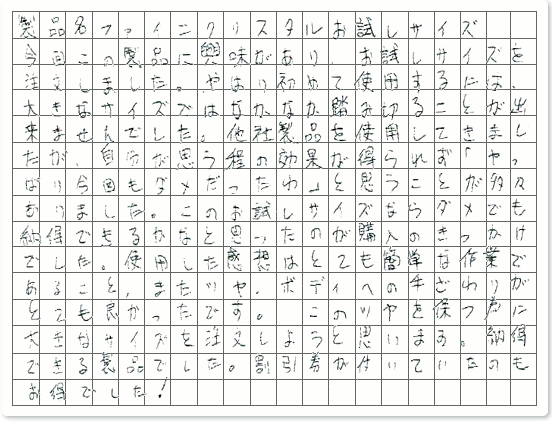 製品名ファインクリスタルお試しサイズ
今回この製品に興味があり、お試しサイズを
注文しました。やはり初めて使用するには、
大きなサイズではなかなか踏み切ることが出
来ませんでした。他社製品を使用してきまし
たが、自分が思う程の効果が得られず「やっ
ぱり今回もダメだったわ」と思うことが多々
ありました。このお試しサイズならダメでも
納得できるかなと思ったのが購入のきっかけ
でした。使用した感想はとても簡単な作業で
あること、またツヤ、ボディへの手ざわりが
とても良かったです。このツヤを保つ為に
大きなサイズを注文しようと思います。納得
できる製品でした。割引券が付いていたのも
お得でした!